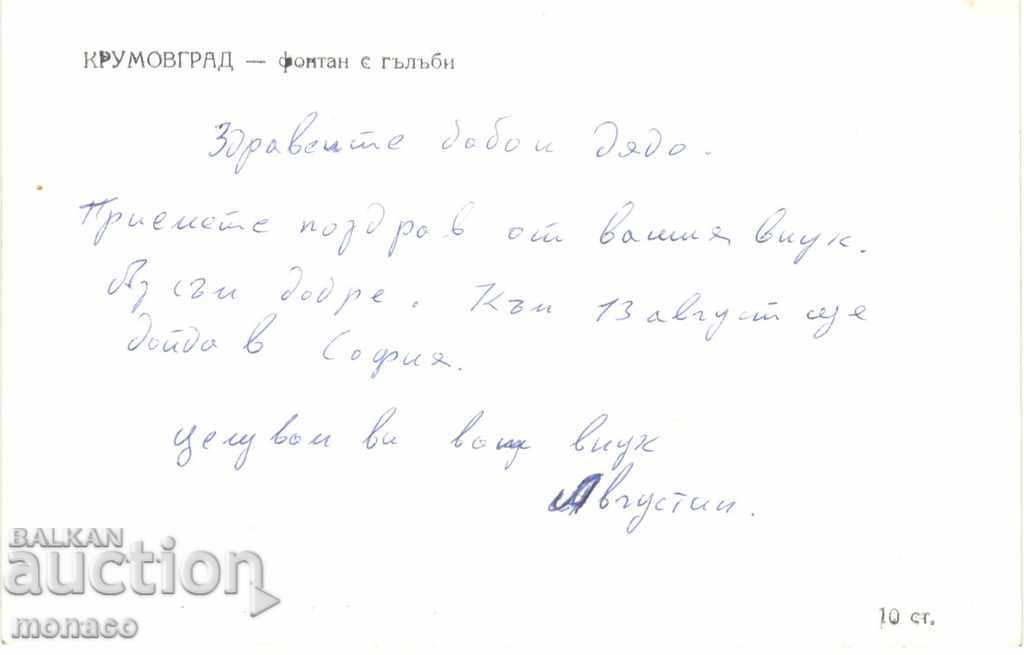 КРУМОВГРАД — фонтан с гълъби
Здравейте бабо и дядо.
Приемете поздрав от вашия внук.
Аз съм добре. Към 13 август ще
дойда в София.
Целувам ви ваш внук
Августин.
BALKAN
auction
monaco
10 ст.